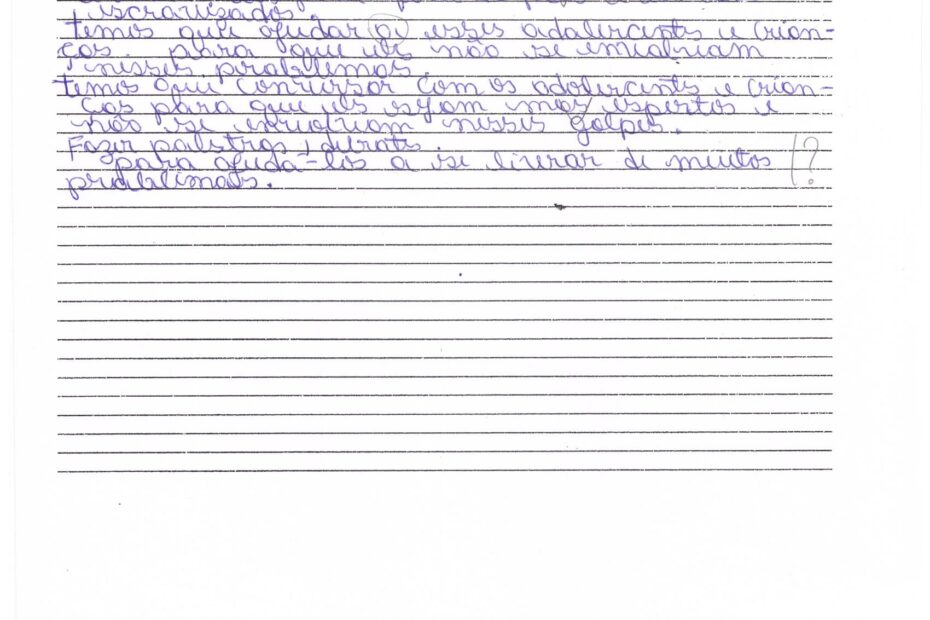 escravizados
temos que ajudar a esses adolecents e crian-
ças. para que eles não se envolviam
nesses problemas.
temos que conversar com os adolecents e crian-
ças para que eles sejam mas espertos e
não se envolviam nesses golpes.
Fazer palestras, debates.
para ajuda-los a se livrar de muitos ?
problemas.